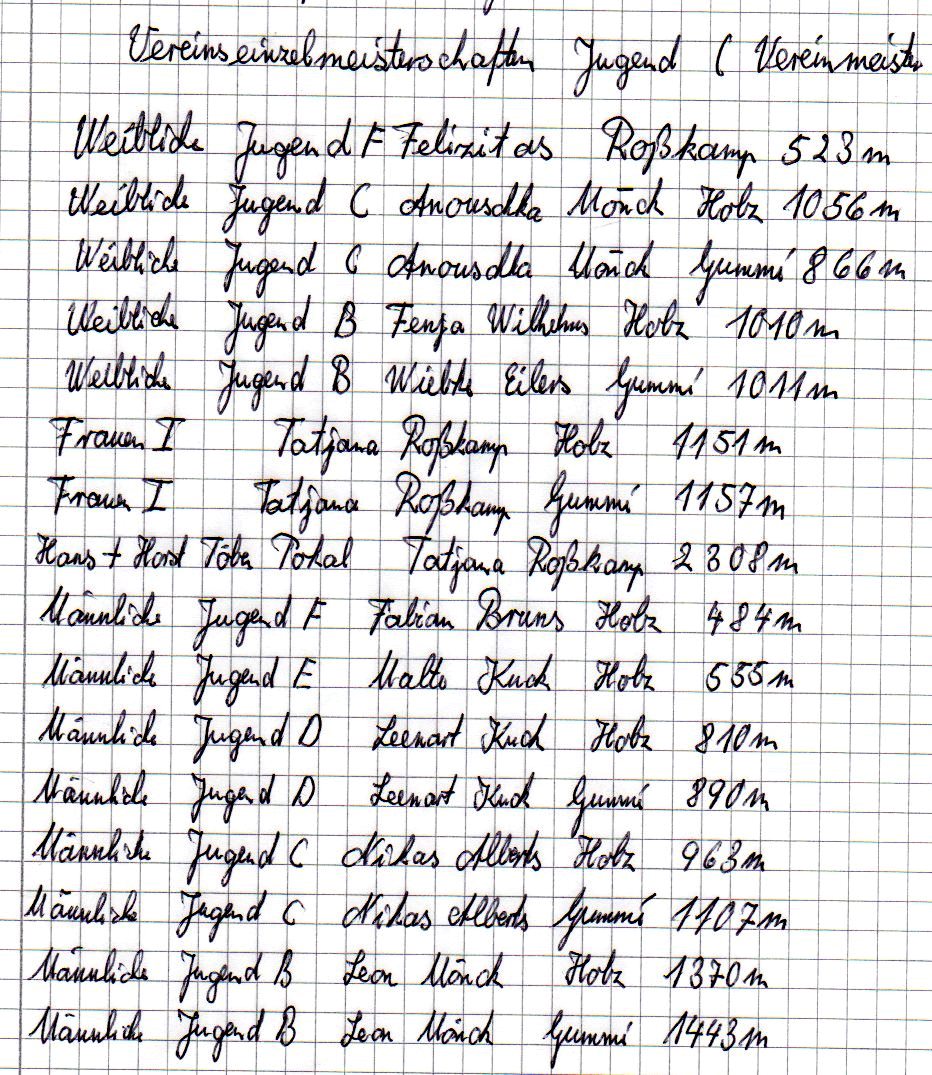 Vereinseinzelmeisterschaften Jugend ( Vereinmeister
Weibliche Jugend F Felizitas Roßkamp 523 m
Weibliche Jugend C Anouschka Mönch Holz 1056 m
Weibliche Jugend C Anouschka Mönch Gummi 866 m
Weibliche Jugend B Fenja Wilhelms Holz 1010 m
Weibliche Jugend B Wiebke Eilers Gummi 1011 m
Frauen I Tatjana Roßkamp Holz 1151 m
Frauen I Tatjana Roßkamp Gummi 1157 m
Hans + Horst Pokal Tatjana Roßkamp 2308 m
Männliche Jugend F Fabian Bruns Holz 484 m
Männliche Jugend E Malte Kuck Holz 555 m
Männliche Jugend D Leenart Kuck Holz 810 m
Männliche Jugend D Leenart Kuck Gummi 890 m
Männliche Jugend C Niklas Alberts Holz 963 m
Männliche Jugend C Niklas Alberts Gummi 1107 m
Männliche Jugend B Leon Mönch Holz 1370 m
Männliche Jugend B Leon Mönch Gummi 1443 m